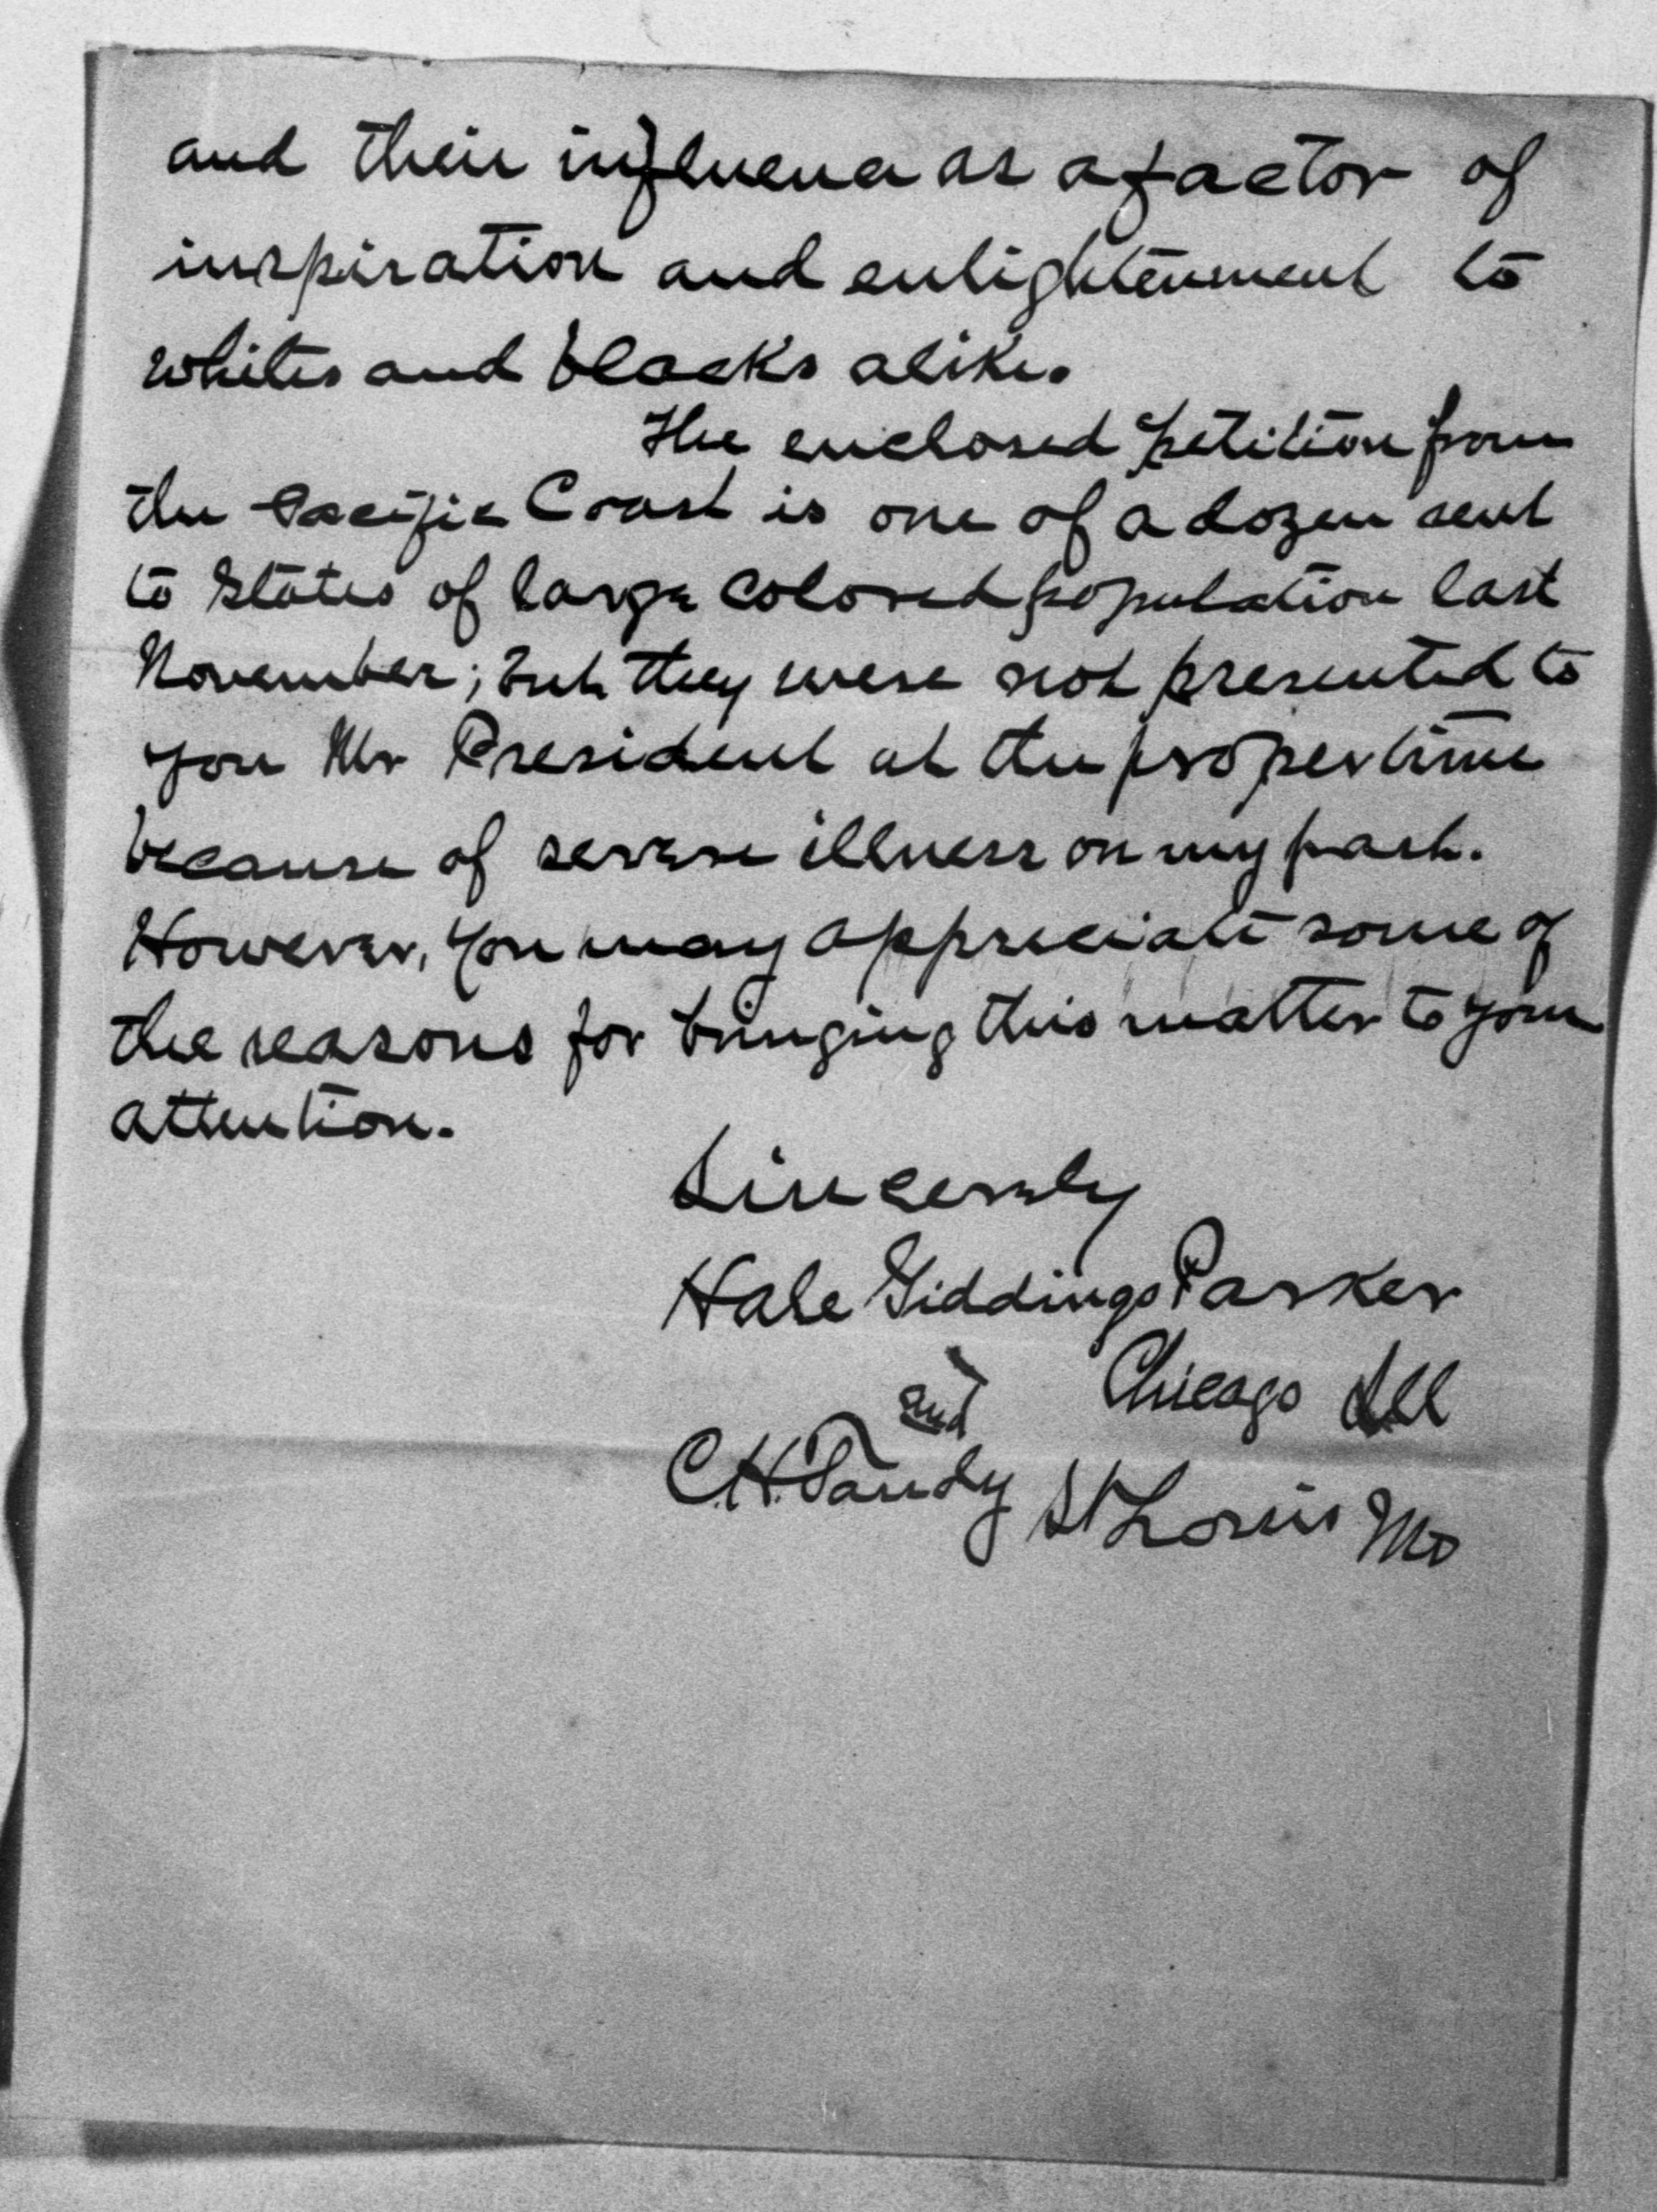 and their influence as a factor of
inspiration and enlightenment to
whites and blacks alike.
The enclosed petition from
the Pacific Coast is one of a dozen sent
to States of large colored population last
November; but they were not presented to
you Mr President at the proper time
because of severe illness on my part.
However, you may appreciate some of
the reasons for bringing this matter to your
attention.
Sincerely
Hale Giddings Parker
Chicago Ill
and
C.H. Tandy St Louis Mo